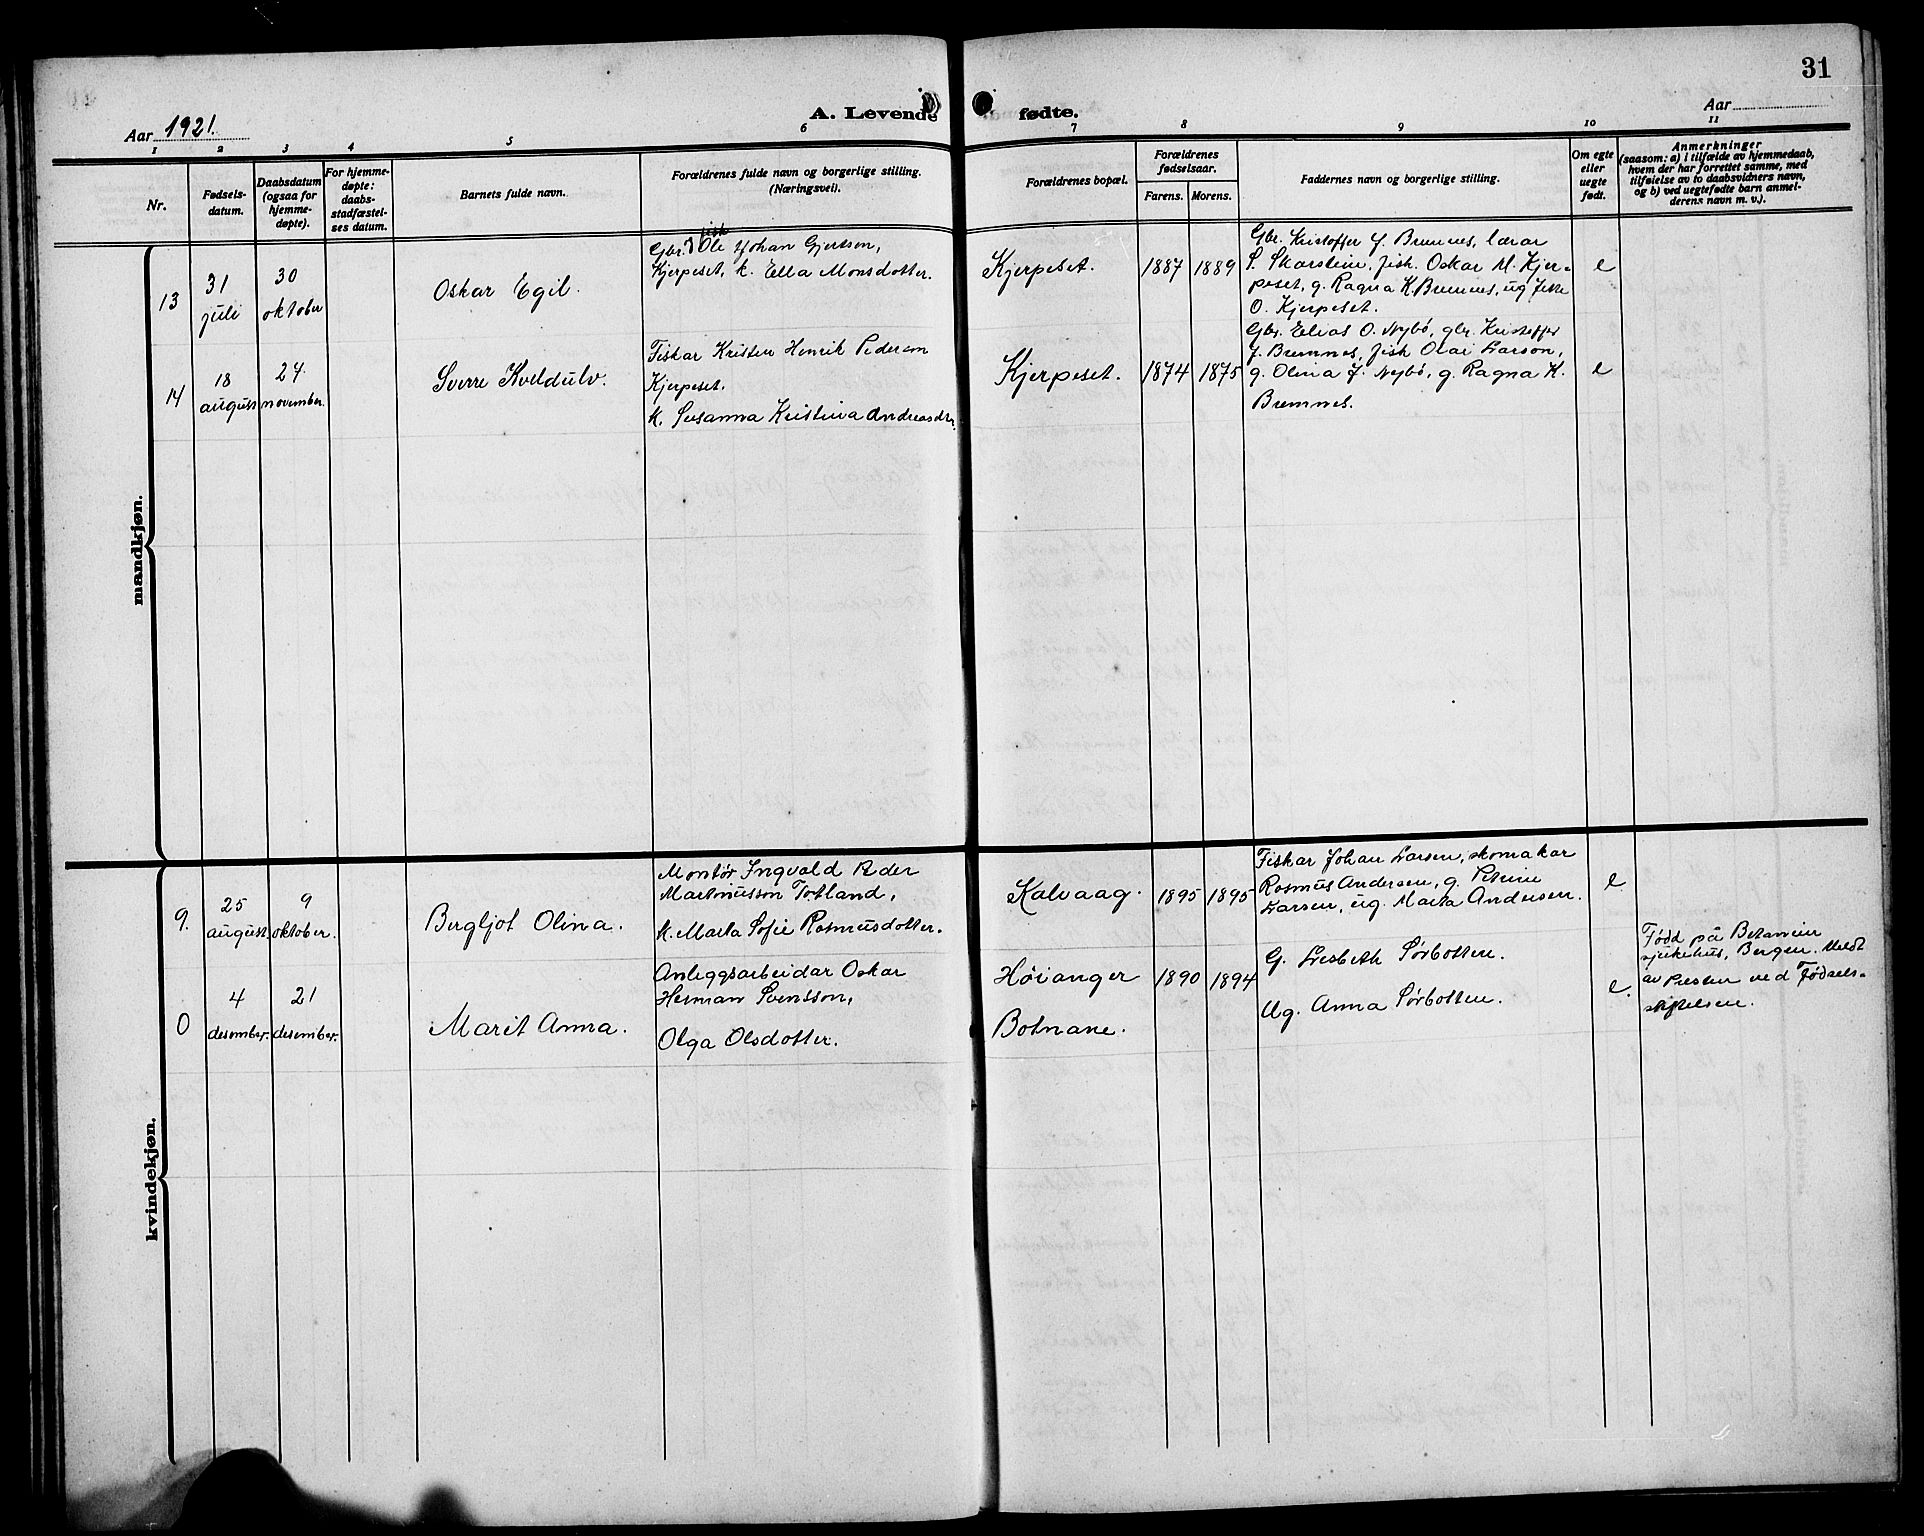 31
Aar 1921.
A. Levende fødte.
Aar
1 2 3 4 5 6 7 8 9 10 11
Nr.
Fødsels-
datum.
Daabsdatum
(ogsaa for
hjemme-
døpte).
For hjemme-
døpte:
daabs-
stadfæstel-
ses datum.
Barnets fulde navn.
Forældrenes fulde navn og borgerlige stilling.
(Næringsvei).
Forældrenes bopæl.
Forældrenes
fødselsaar.
Farens. Morens.
Faddernes navn og borgerlige stilling.
Om egte
eller
uegte
født.
Anmerkninger
(saasom: a) i tilfælde av hjemmedaab,
hvem der har forrettet samme, med
tilføielse av to daabsvidners navn,
og b) ved uegtefødte barn anmel-
derens navn m. v.).
mandkjøn.
13
31
juli
30
oktober
Oskar Egil.
fisk
Gbr. Ole Johan Gjertsen,
Kjerpeset, k. Ella Monsdotter.
Kjerpeset.
1887
1889
Gbr. Kristoffer J. Bremnes, lærar
S. Skarstein, fisk. Oskar M. Kjer-
peset, g. Ragna K. Bremnes, ug
O. Kjerpeset.
e
14
18
august
27
november.
Sverre Kveldulv.
Fiskar Kristen Henrik Pederson
Kjerpeset.
k. Susanna Kristina Andreasdtr.
Kjerpeset.
1874
1875
Gbr. Elias O. Nybö, gbr. Kristoffer
J. Bremnes, fisk Olai Larson,
g. Olina J. Nybö, g. Ragna K.
Bremnes.
e
kvindekjøn.
9.
25
august.
9
oktober.
Bergljot Olina.
Montör Ingvald Peder
Martinusson Totland,
k. Marta Sofie Rasmusdotter.
Kalvaag.
1895
1895
Fiskar Johan Larsen, skomakar
Rasmus Andersen, g. Petrine
Larsen, ug. Marta Andersen.
e
0
4
desember.
21
desember.
Marit Anna.
Anleggsarbeidar Oskar
Herman Svensson,
Olga Olsdotter.
Höianger
Botnane.
1890
1894
G. Lisbeth Sørbotten.
Ug. Anna Sørbotten.
e.
Född på Betanien
sjukehus, Bergen. Meldt
av Presten ved Fødsels-
stiftelsen.